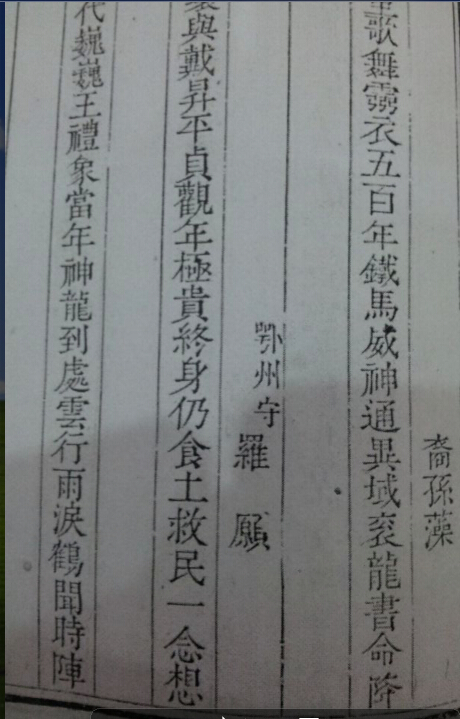 裔孫藻
歌舞霛衣五百年鐵馬威神通異域衮龍書命降
鄂州守羅願
與戴昇平貞觀年極貴終身仍食土救民一念想
代巍巍王禮象當年神龍到處雲行雨淚鶴聞時陣